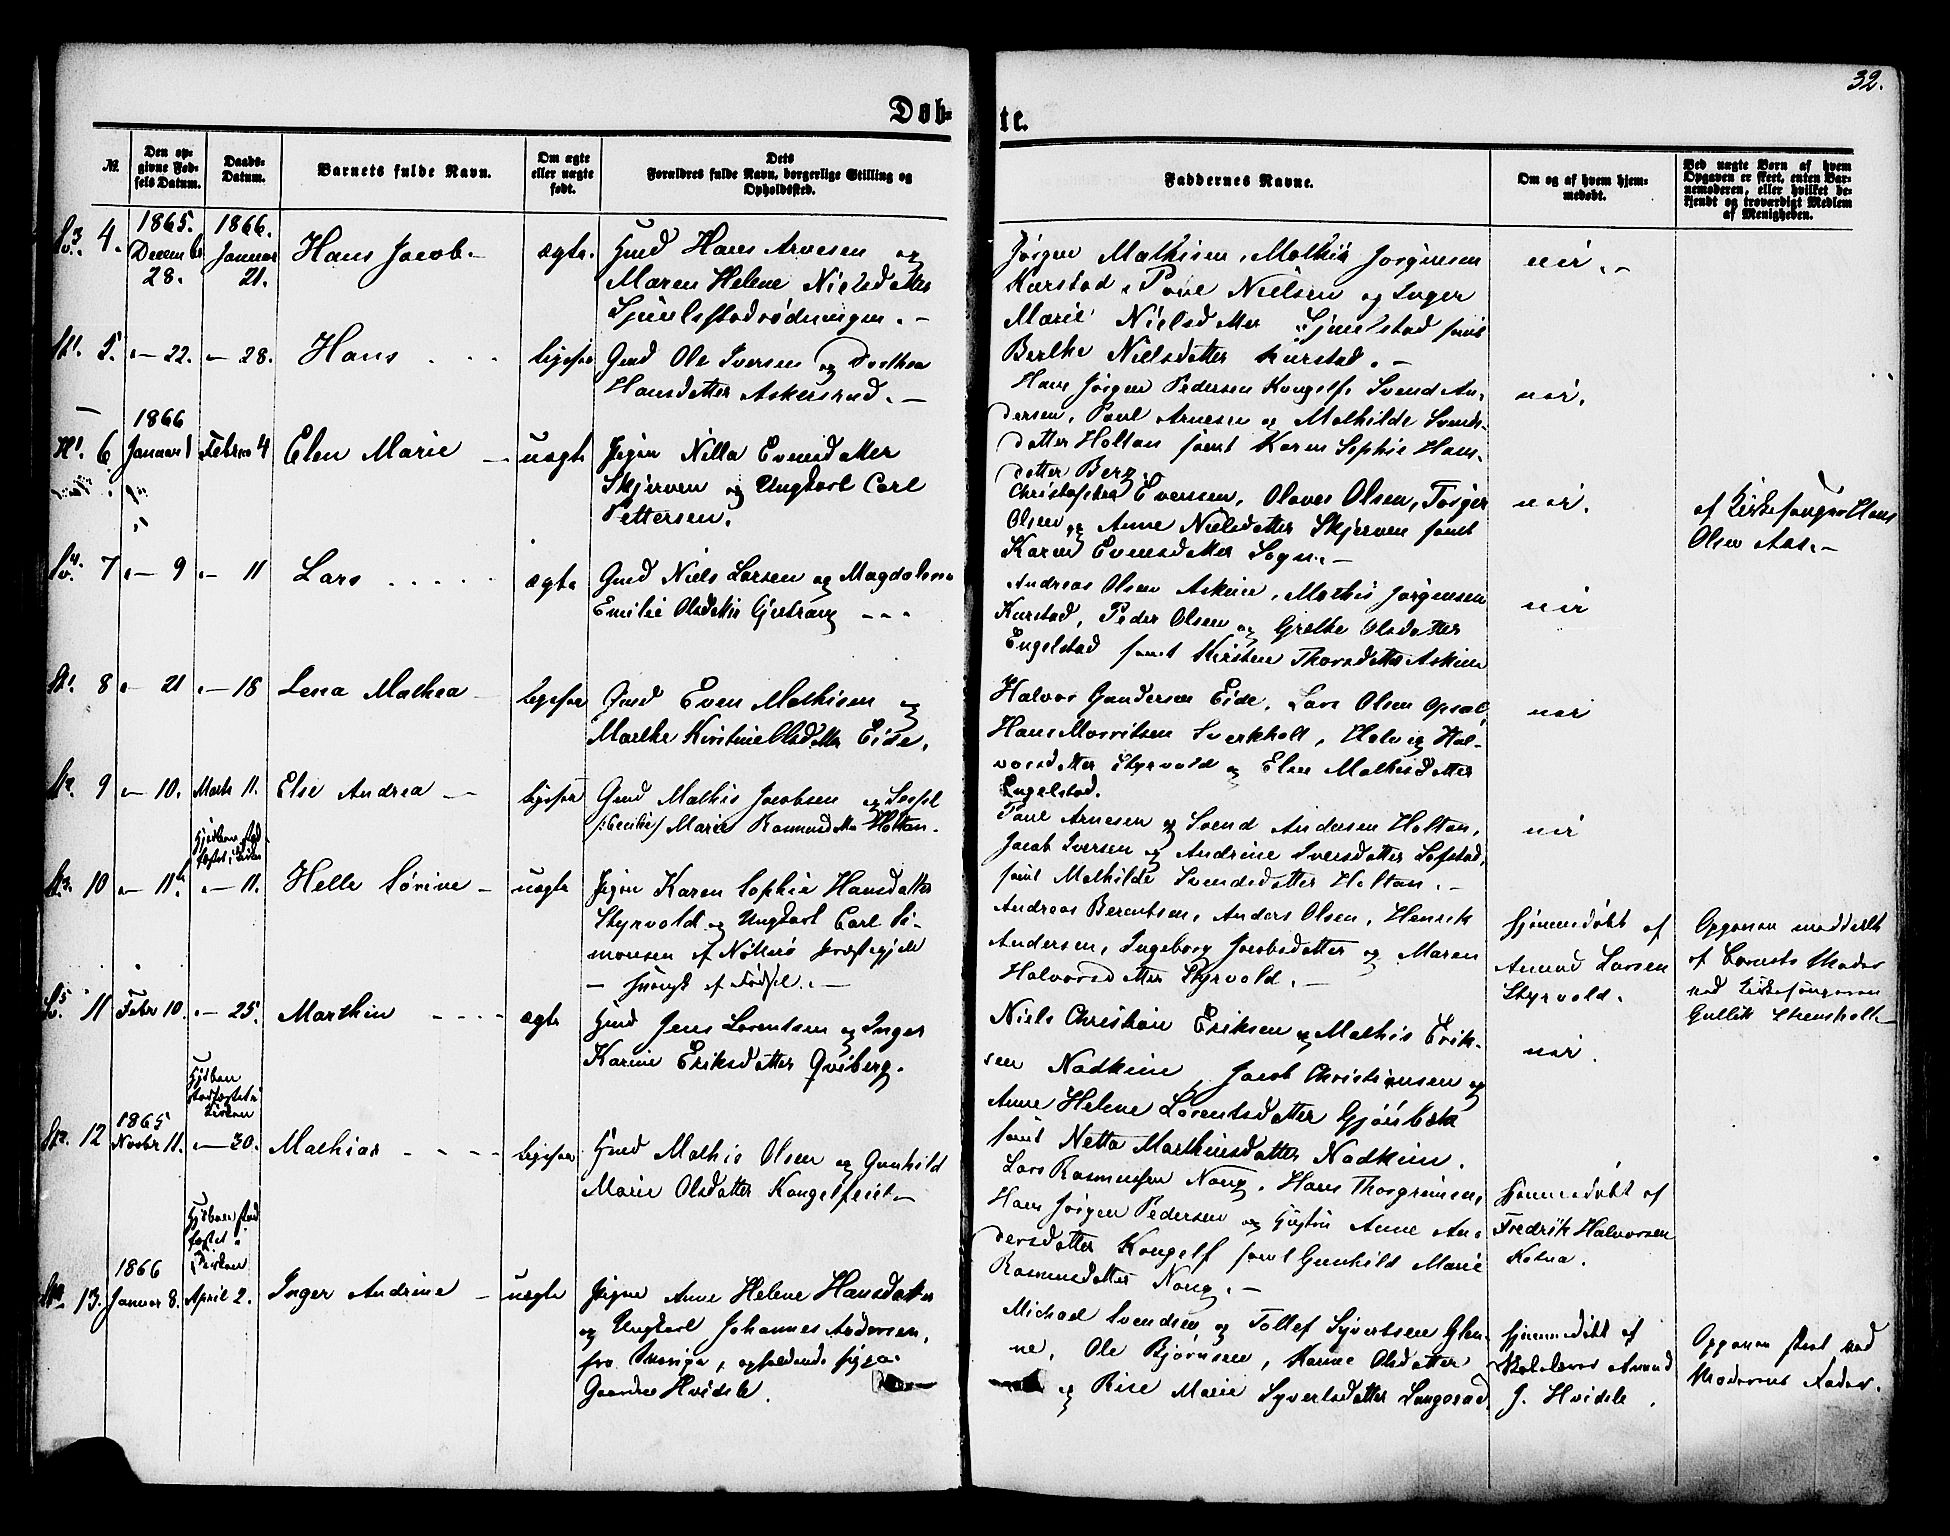 32.
Døb-
te.
№
Den op-
givne Fød-
sels Datum.
Daabs-
Datum.
Barnets fulde Navn.
Om ægte
eller uægte
født.
Dets
Forældres fulde Navn, borgerlige Stilling og
Opholdssted.
Faddernes Navne.
Om og af hvem hjem-
medøbt.
Ved uægte Børn af hvem
Opgaven er skeet, enten Bar-
nemoderen, eller hvilket be-
kjendt og troværdigt Medlem
af Menigheden.
4.
1865.
Decemb
28.
1866.
Januar
21.
Hans Jacob -
ægte.
Gmd Hans Arvesen og
Maren Helene Nielsdatter
Sjuelstadrødningen. -
Jørgen Mathisen, Mathis Jørgensen
Kurstad, Povel Nielsen og Inger
Marie Nielsdatter Sjuelstad samt
Berthe Nielsdatter Kurstad. -
nei. -
5.
- 22.
- 28.
Hans . . .
ligesaa
Gmd Ole Iversen og Dorthea
Hansdatter Askeisrud. -
Hans Jørgen Pedersen Kongelf. Svend An-
dersen, Paul Arnesen og Mathilde Svends-
datter Holtan samt Karen Sophie Hans-
datter Berg.
nei.
6
1866
Januar 1
Februar 4
Elen Marie -
uægte
Pigen Nilla Evensdatter
Skjerven og Ungkarl Carl
Pettersen.
Christopher Evensen, Olaves Olsen, Torger
Olsen og Anne Nielsdatter Skjerven samt
Karen Evensdatter Sogn. -
nei.
af Kirkesanger Hans
Olsen Aas. -
7
- 9
- 11
Lars . . . . .
ægte
Gmd Niels Larsen og Magdalena
Emilie Olsdatter - - -
Andreas Olsen Askim, Mathis Jørgensen
Kurstad, Peder Olsen og Grethe Olsdatter
Engelstad samt Kirsten Thorsdatter Askim
nei
8
- 21
- 18
Lena Mathea -
ligesaa
Gmd Even Mathisen og
Marthe Kirstine Olsdatter Eide.
Halvor Gundersen Eide, Lars Olsen Opsal,
Hans Morritsen Sverkholt, Helvig Hal-
vorsdatter Styrvold og Elen Mathisdatter
Engelstad.
nei
9
- 10.
Marts 11.
Else Andrea -
ligesaa
Gmd Mathis Jacobsen og Sessel
/:Cecilie/ Marie Rasmusdatter Holtan.
Paul Arnesen og Svend Andersen Holtan,
Jacob Iversen og Andrine Iversdatter Lofstad,
samt Mathilde Svendsdatter Holtan. -
nei
10
- 11.
- 11.
Helle Sørine -
uægte
Pigen Karen Sophie Hansdatter
Styrvold og Ungkarl Carl Si-
monsen af Nøtterø Præstegjeld
- Svensk af Fødsel. -
Andreas Berentsen, Anders Olsen, Henrik
Andersen, Ingeborg Jacobsdatter og Maren
Halvorsdatter Styrvold. -
hjemmedøbt af
Amund Larsen
Styrvold.
Opgaven meddelt
af Barnets Moder
ved Kirkesangeren
Gullik Steensholt -
11
Febr 10.
- 25.
Marthin - - - -
ægte
Gmd Jens Lorentsen og Inger
Karine Eriksdatter Qviberg.
Niels Christian Eriksen og Mathis Erik-
sen Nodkim, Jacob Christiansen og
Anne Helene Lorentsdatter Gjønbæk
samt Netta Marthinsdatter Nodkim.
nei.
Gjdbaa
stadfæstet i
Kirken
12
1865
Novbr 11.
- 30.
Mathias - - - -
ligesaa
Gmd Mathis Olsen og Gunhild
Marie Olsdatter Kongelfeiet -
Lars Rasmussen Noug, Hans Thorgrimsen,
Hans Jørgen Pedersen og Hustru Anne An-
dersdatter Kongelf samt Gunhild Marie
Rasmusdatter Noug. -
hjemmedøbt af
Fredrik Halvorsen
13.
1866
Januar 8.
April 2.
Inger Andrine -
uægte
Pigen Anne Helene Hansdatter
og Ungkarl Johannes Andersen,
fra Sverige, opholdende sig paa
Gaarden Hvidsle.
Michael Svendsen og Tollef Syvertsen Glen-
ne, Ole Bjørnsen, Hanne Olsdatter
og Rise Marie Syvertsdatter Langerød
hjemmedøbt af
Skolelærer Amund
J. Hvidsle.
Opgaven skeet ved
Moderens Fader.